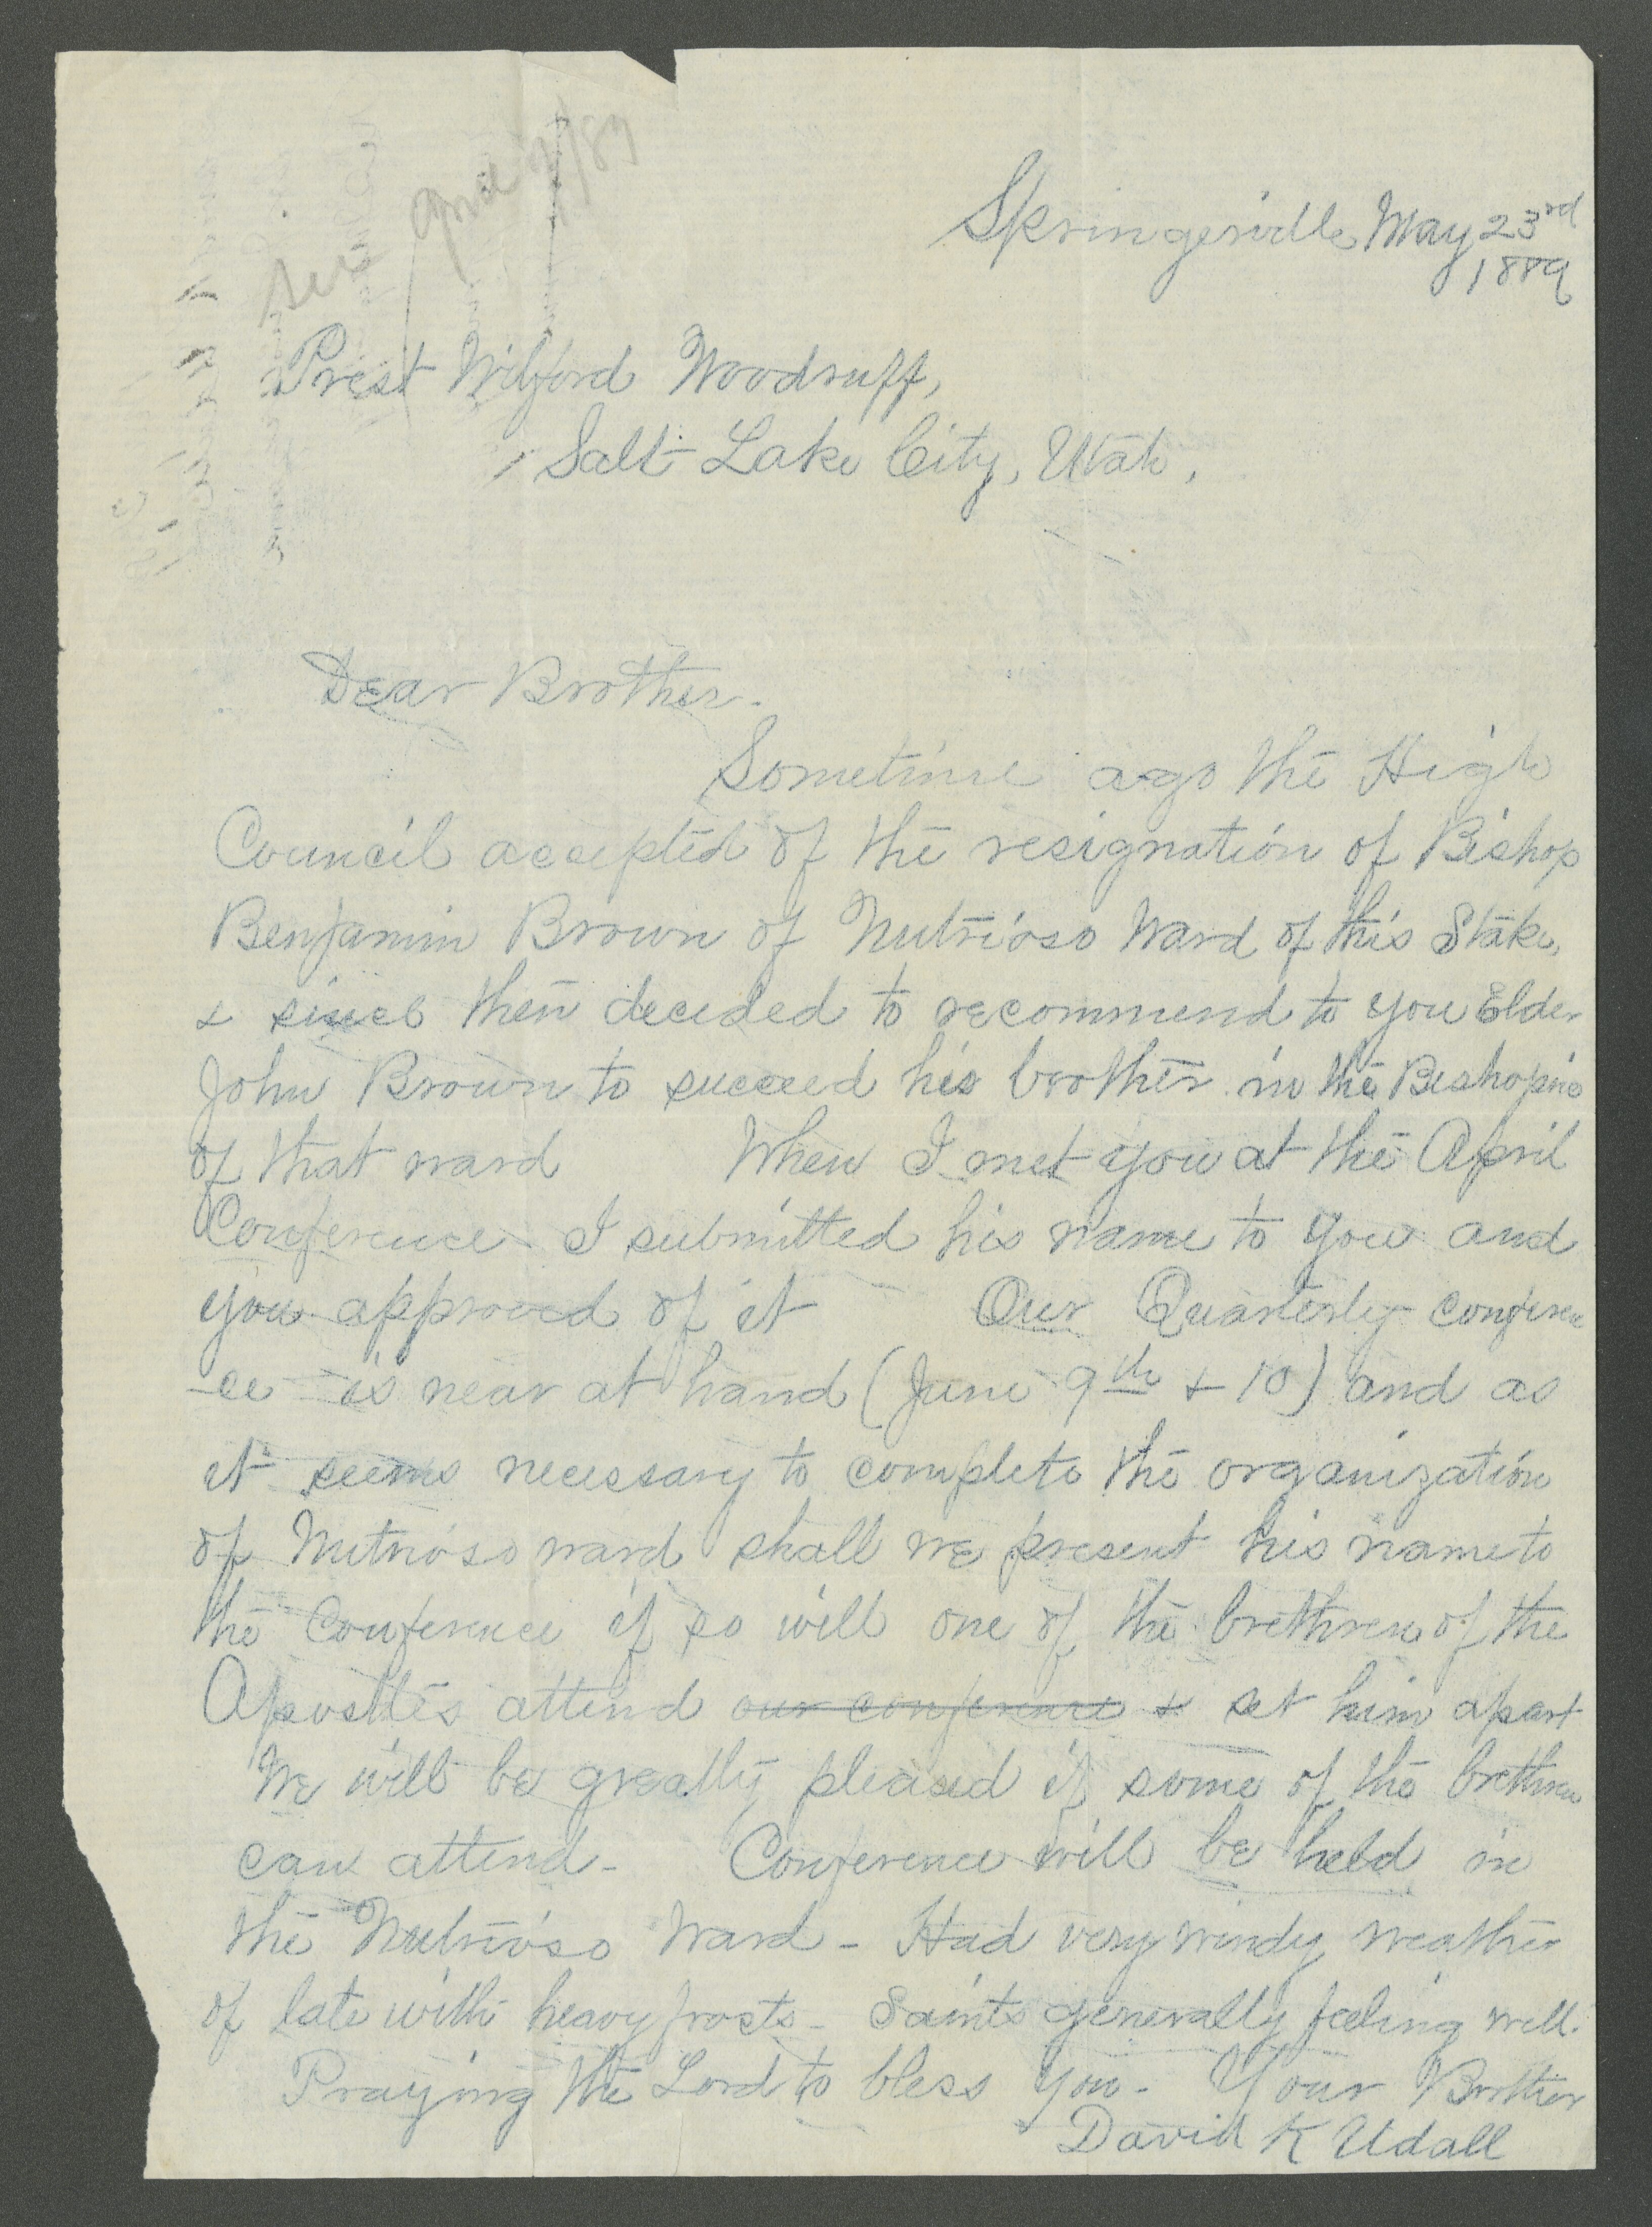 Springerville May 23rd
1889
Prest Wilford Woodruff,
Salt Lake City, Utah,
Dear Brother.
Sometime ago the High
Council accepted of the resignation of Bishop
Benjamin Brown of Nutrioso Ward of this Stake,
& since then decided to recommend to you Elder
John Brown to succeed his brother in the Bishopric
of that ward When I met you at the April
Conference I submitted his name to you and
you approved of it Our Quarterly conferen
-ce is near at hand (June 9th & 10) and as
it seems necessary to complete the organization
of Nutrioso ward shall we present his name to
the Conference if so will one of the brethren of the
Apostles attend our conference & set him apart
We will be greatly pleased if some of the brethren
can attend- Conference will be held in
the Nutrioso Ward - Had very windy weather
of late with heavy frosts - Saints generally feeling well.
Praying the Lord to bless you - Your Brother
David K Udall